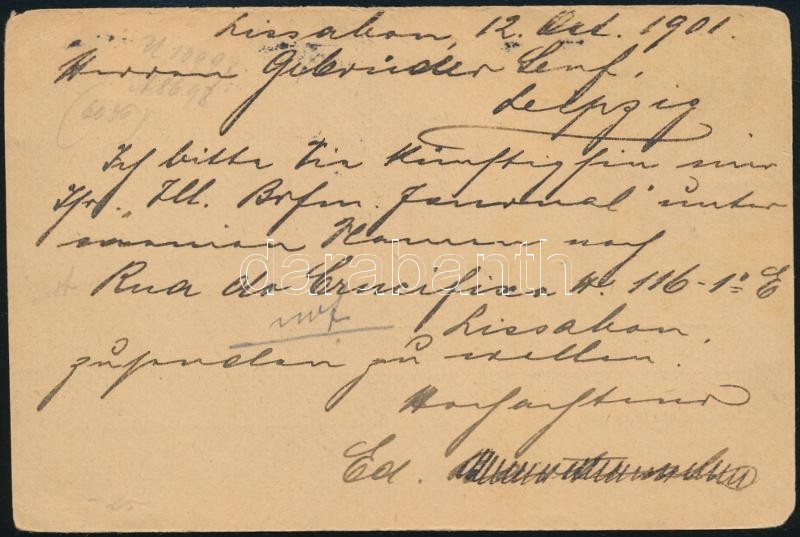 Lissabon, 12. Oct. 1901.
Herren Gebrüder Senf,
Leipzig
Ich bitte Sie künftighin mir
Ihr „Ill. Brfm. Journal" unter
meinem Namen nach
Rua do Crucifixo No. 116-1º E
Lissabon,
zusenden zu wollen.
Hochachtend
Ed.
darabanth